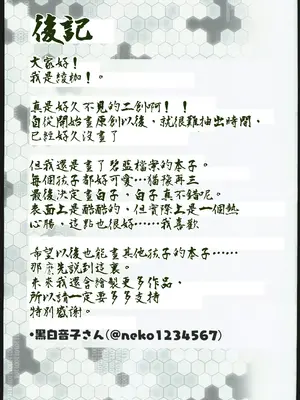 後記
大家好！
我是綾枷。
真是好久不見的二創啊！！
自從開始畫原創以後，就很難抽出時間，
已經好久沒畫了
但我還是畫了碧亞檔案的本子。
每個孩子都好可愛…猶豫再三
最後決定畫白子，白子真不錯呢。
表面上是酷酷的，但實際上是一個熱
心腸，這點也很好……我喜歡
希望以後也能畫其他孩子的本子……
那麼先說到這裏。
未來我還會繪製更多作品，
所以請一定要多多支持
特別感謝。
・黑白音子さん(@neko1234567)